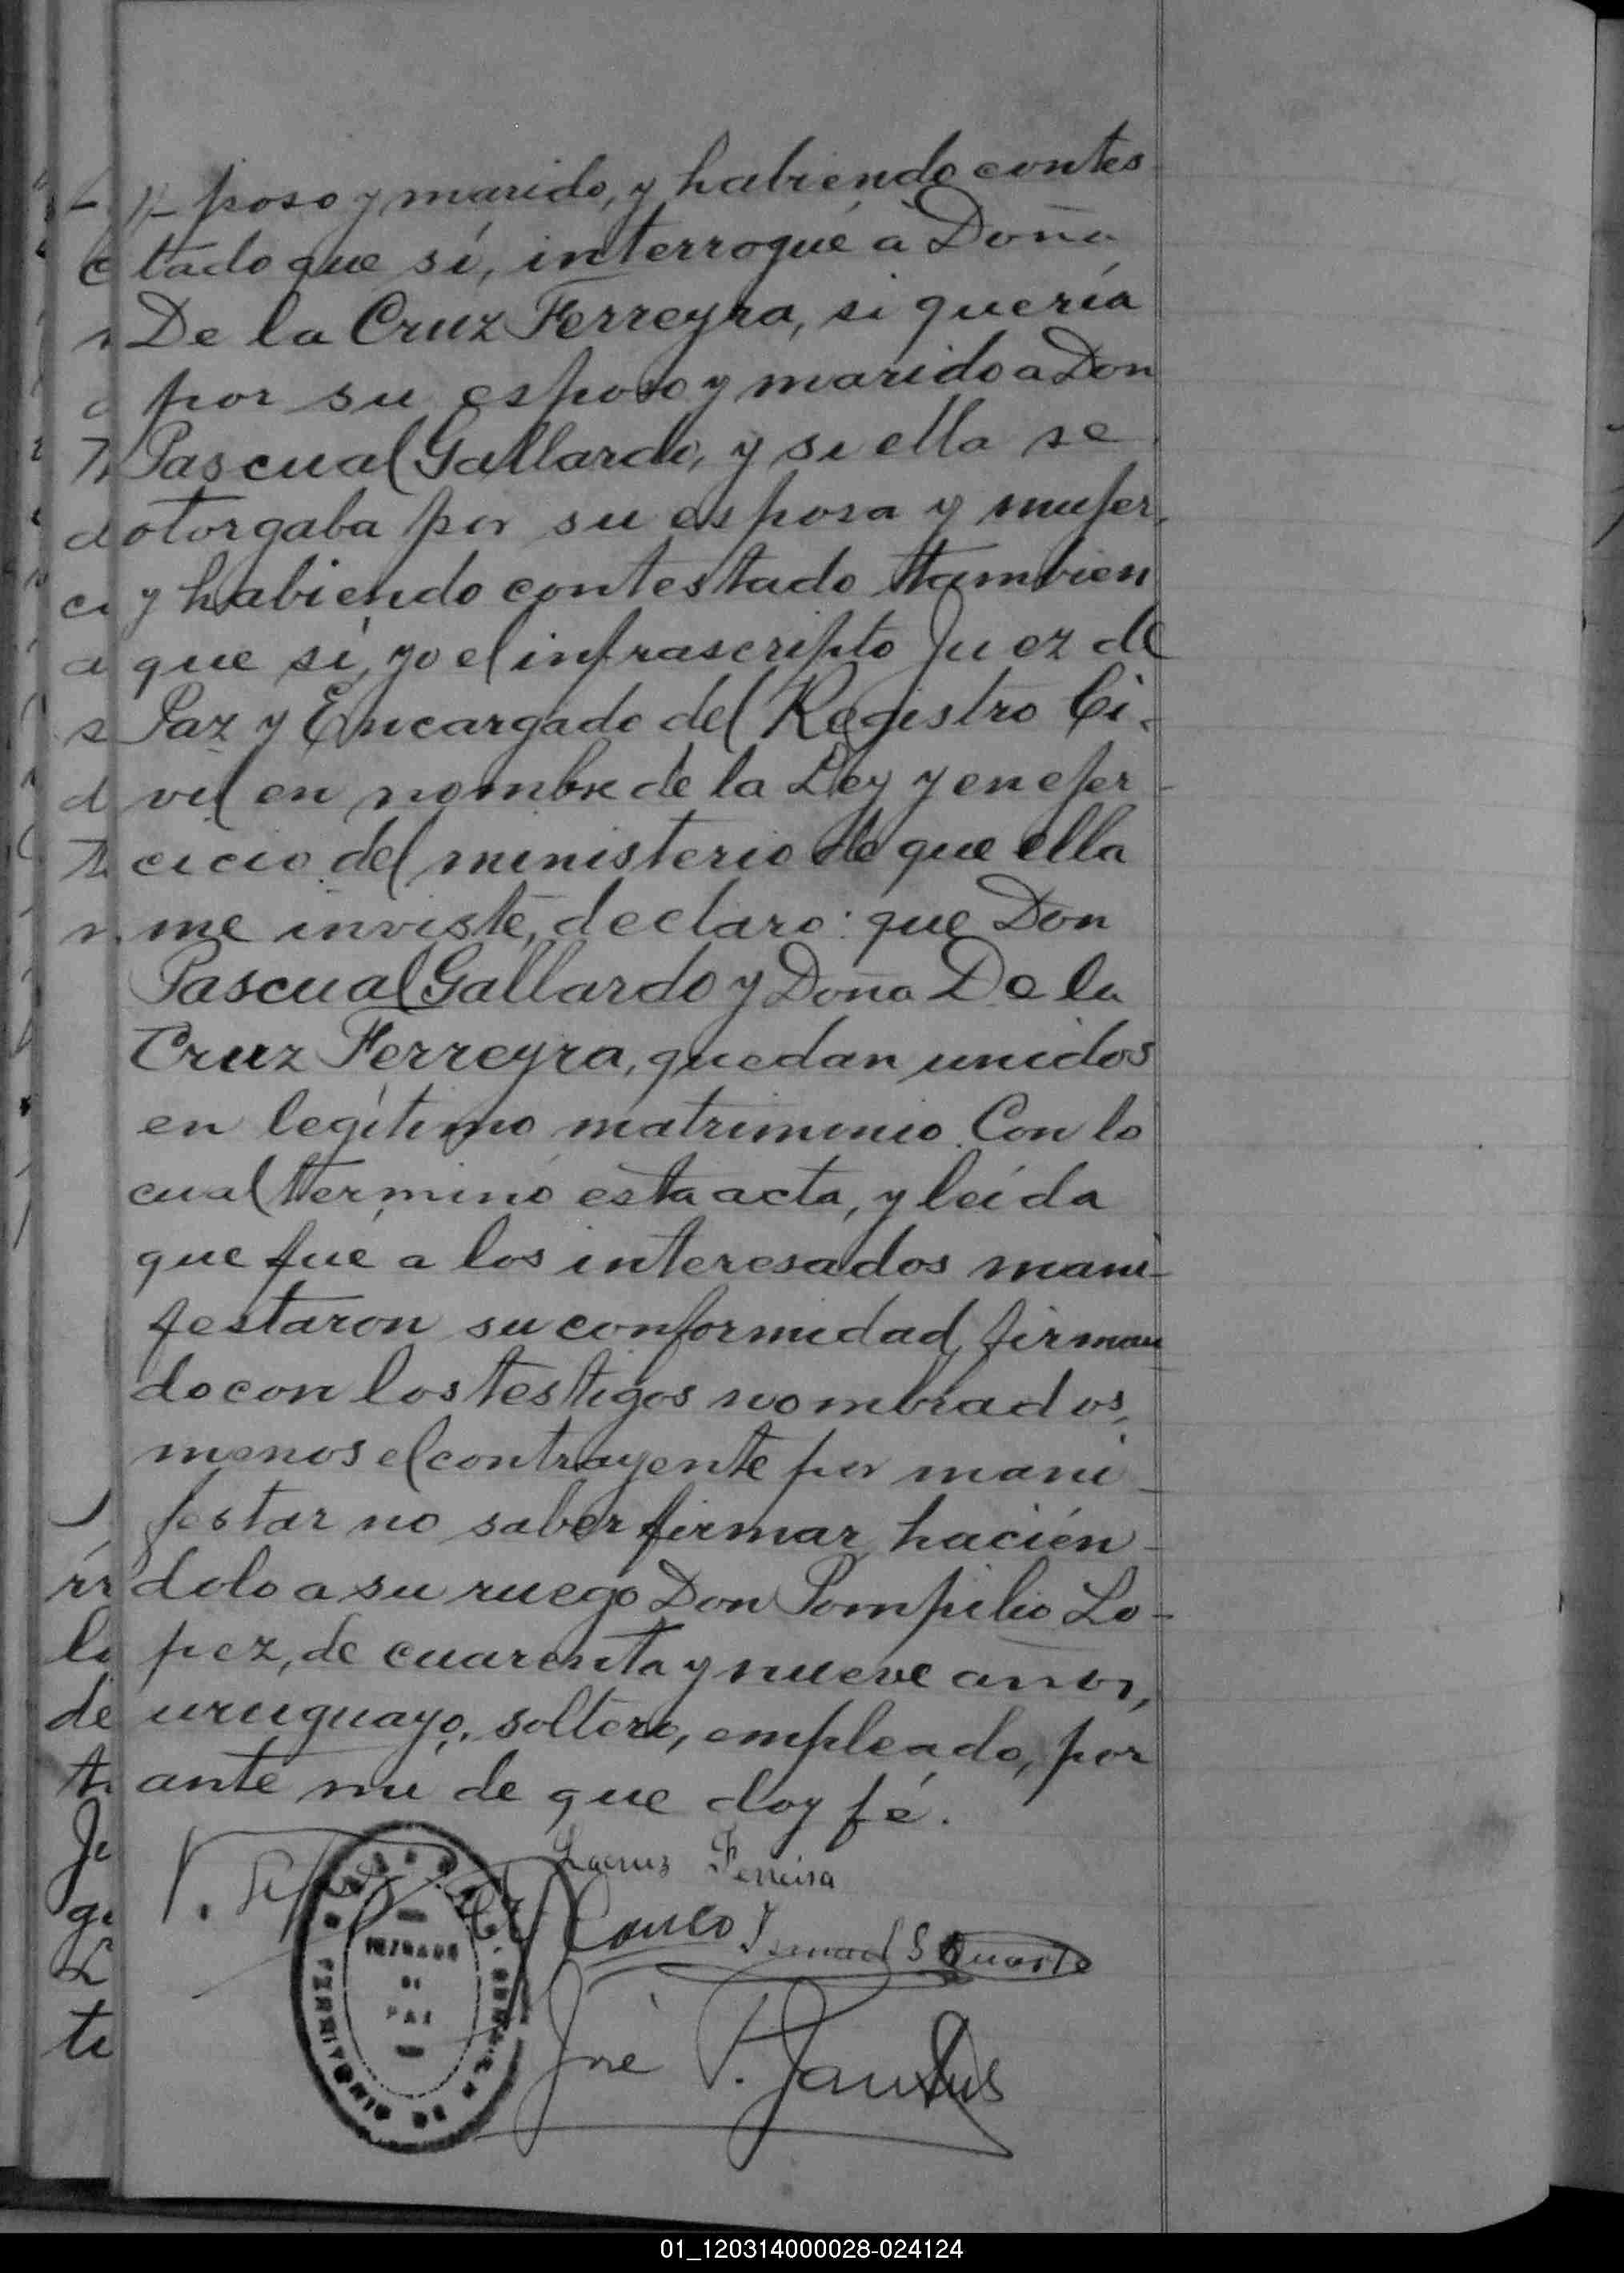 poso y marido, y habiendo contes
tado que sí, interrogué a Doña
De la Cruz Ferreyra, si quería
por su esposo y marido a Don
Pascual Gallardo, y si ella se
otorgaba por su esposa y mujer,
y habiendo contestado tambien
que si, yo el infrascripto Juez de
Paz y Encargado del Registro Ci-
vil en nombre de la Ley y en ejer-
cicio del ministerio de que ella
me inviste, declaro: que Don
Pascual Gallardo y Doña De la
Cruz Ferreyra, quedan unidos
en legítimo matrimonio. Con lo
cual terminó esta acta, y leída
que fué a los interesados mani-
festaron su conformidad, firman
do con los testigos nombrados,
menos el contrayente por mani-
festar no saber firmar, hacién-
dolo a su ruego Don Pompilio Lo-
pez, de cuarenta y nueve anos,
uruguayo, soltero, empleado, por
ante mi de que doy fé.
Lacruz Ferreira
Ismael S Duarte
JUZGADO
DE
PAZ
José P.
01_120314000028-024124